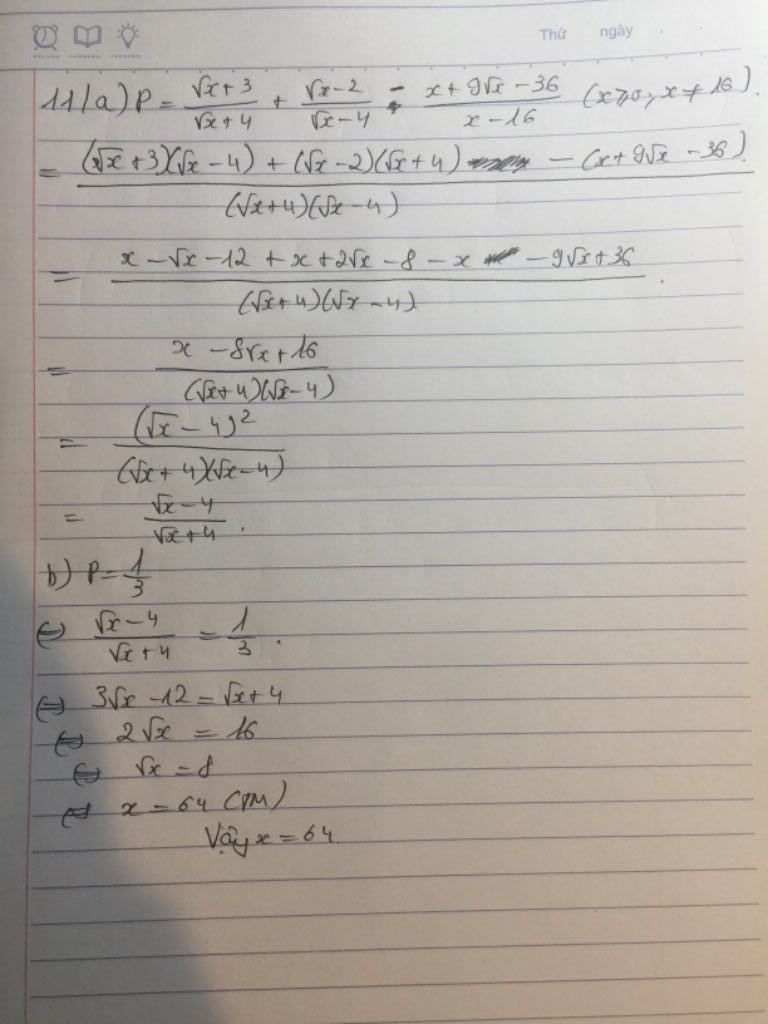 Thứ ngày
11/a) P = \frac{√x+3}{√x+4} + \frac{√x-2}{√x-4} - \frac{x+9√x-36}{x-16} (x≥0, x≠16).
= \frac{(√x+3)(√x-4)+(√x-2)(√x+4) -(x+9√x-36)}{(√x+4)(√x-4)}
= \frac{x-√x-12+x+2√x-8-x -9√x+36}{(√x+4)(√x-4)}.
= \frac{x-8√x+16}{(√x+4)(√x-4)}
= \frac{(√x-4)^2}{(√x+4)(√x-4)}
= \frac{√x-4}{√x+4}.
b) P=\frac{1}{3}
⇔ \frac{√x-4}{√x+4} = \frac{1}{3}.
⇔ 3√x-12=√x+4
⇔ 2√x = 16
⇔ √x = 8
⇔ x = 64 (TM)
Vậy x = 64.